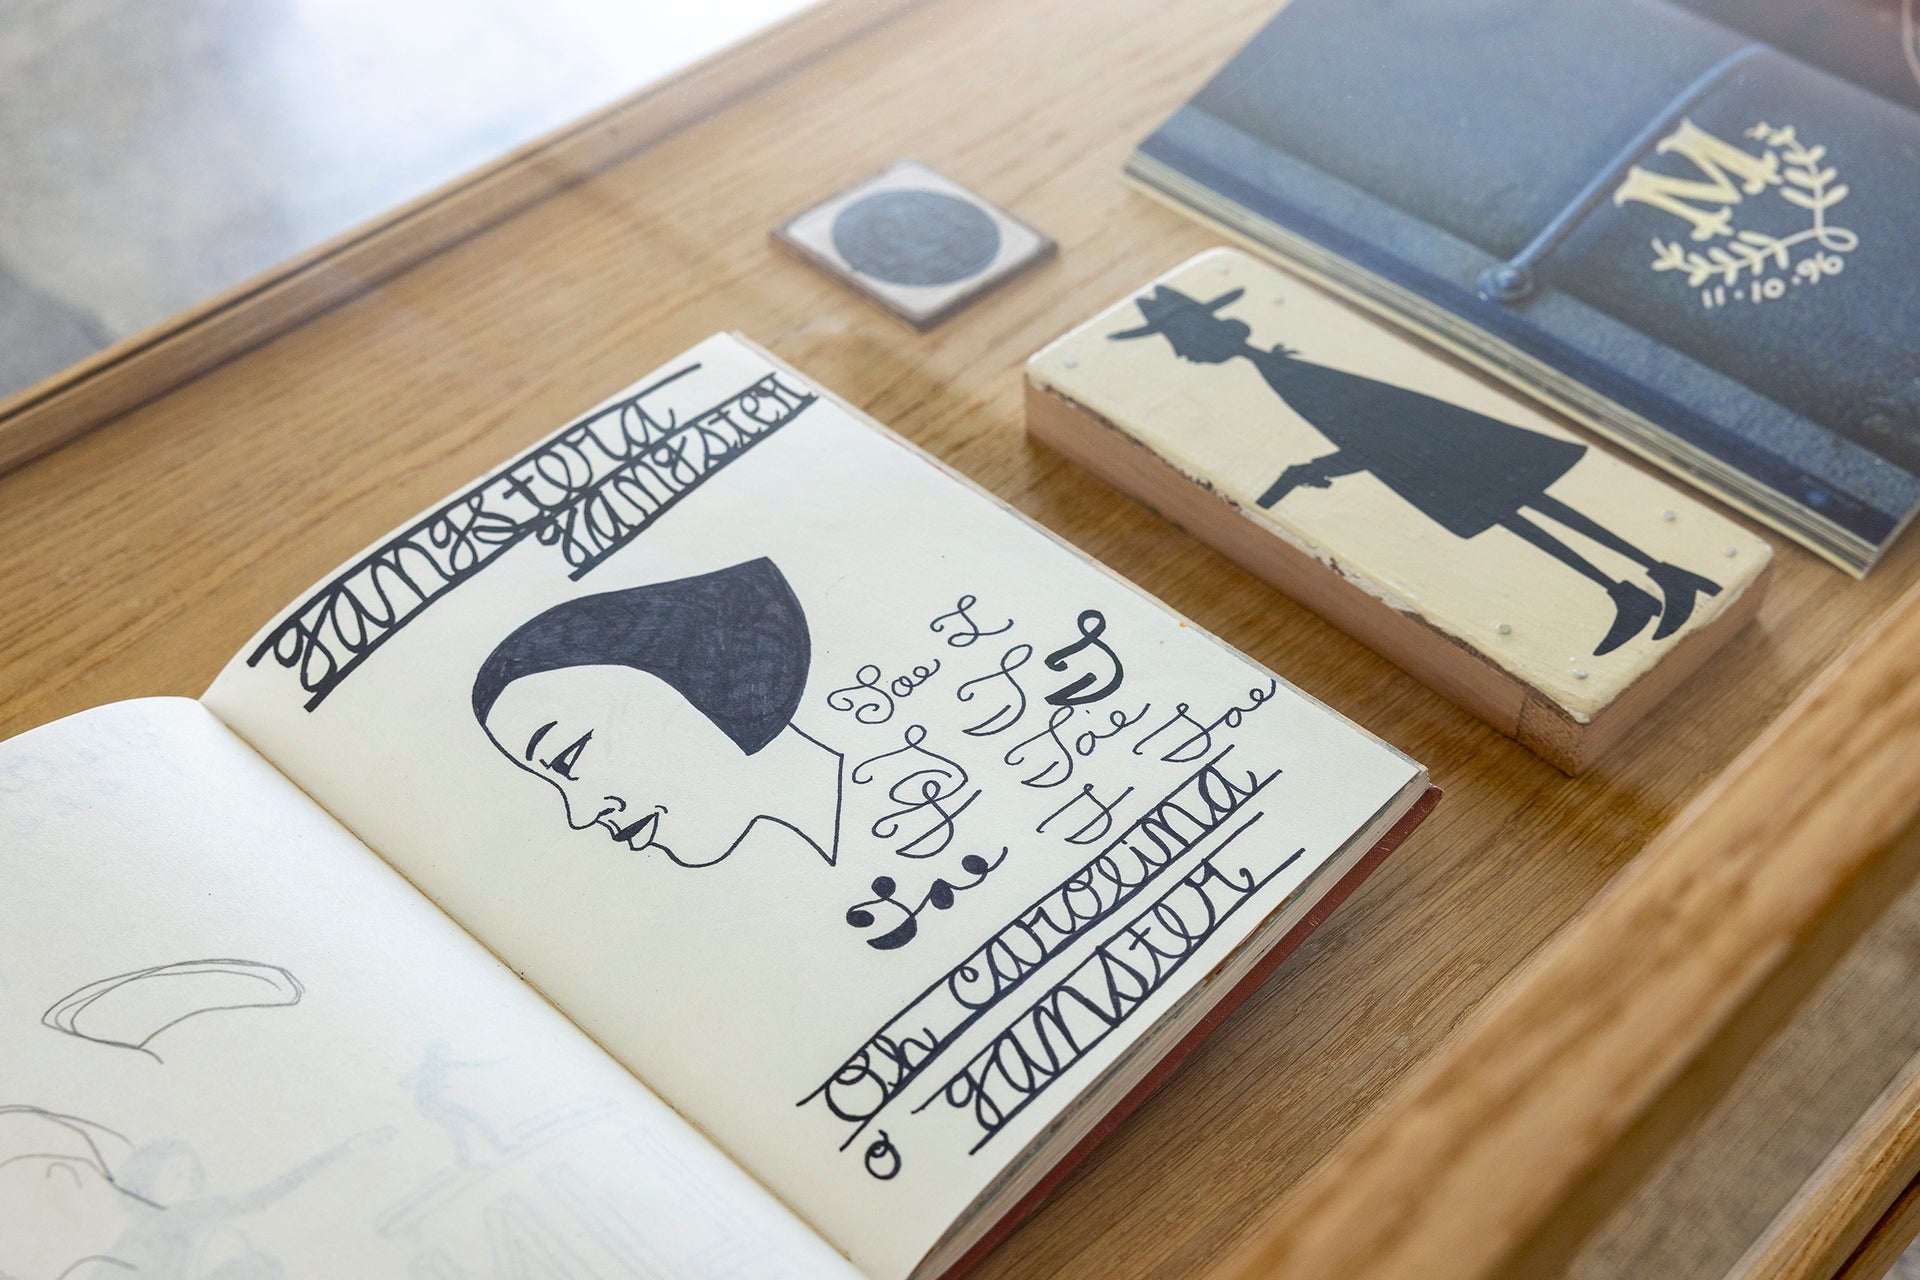 gangstera
gangster
Joe J
J J J
J Joe Joe
J J
Joe
Oh carolina
o ganster
M
11·10·96